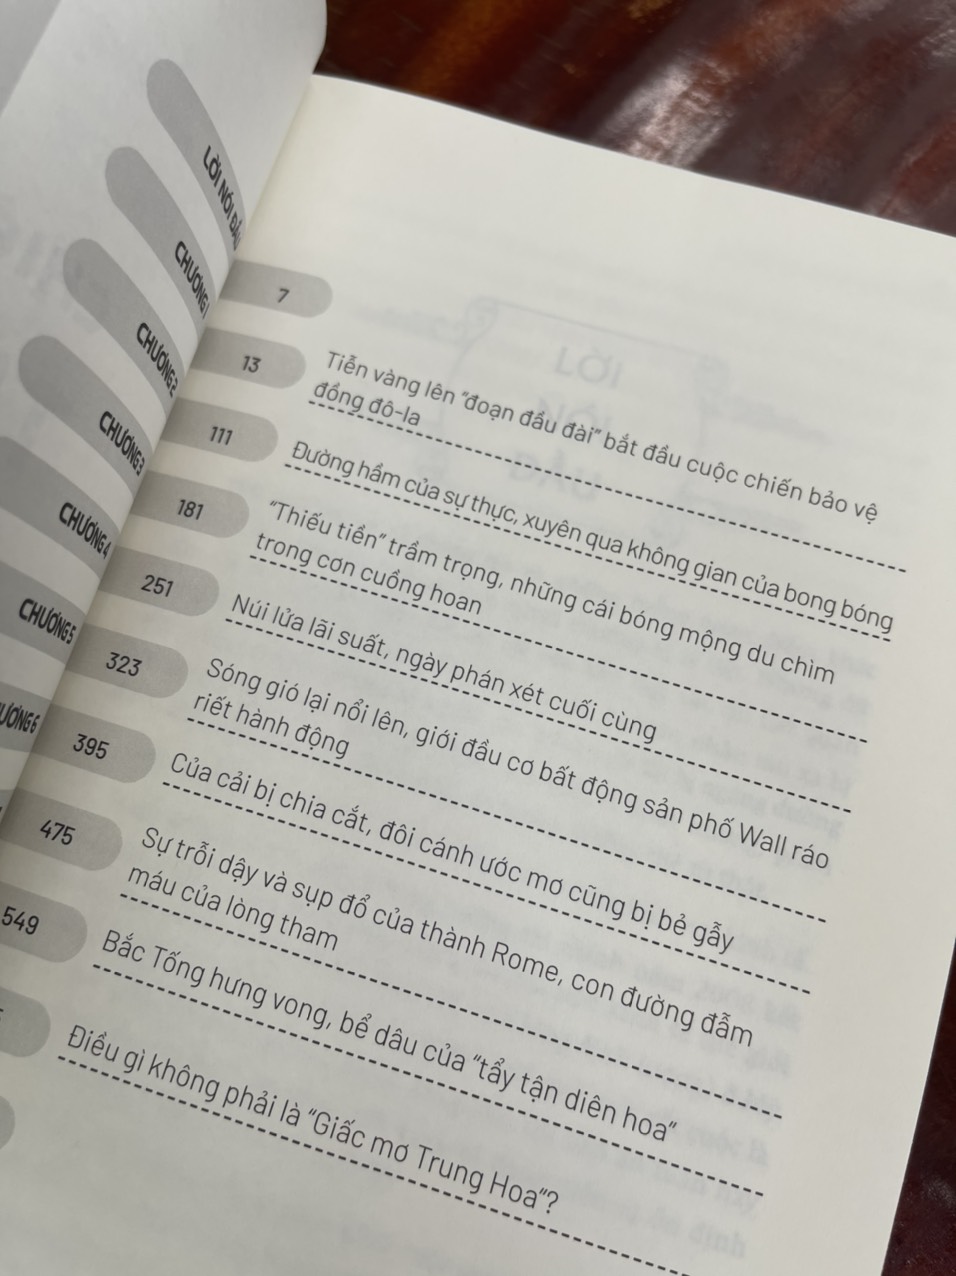 LỜI NÓI ĐẦU
7
CHƯƠNG 1
13
Tiễn vàng lên "đoạn đầu đài" bắt đầu cuộc chiến bảo vệ
đồng đô-la
CHƯƠNG 2
111
Đường hầm của sự thực, xuyên qua không gian của bong bóng
CHƯƠNG 3
181
"Thiếu tiền" trầm trọng, những cái bóng mộng du chìm
trong cơn cuồng hoan
CHƯƠNG 4
251
Núi lửa lãi suất, ngày phán xét cuối cùng
CHƯƠNG 5
323
Sóng gió lại nổi lên, giới đầu cơ bất động sản phố Wall ráo
riết hành động
395
Của cải bị chia cắt, đôi cánh ước mơ cũng bị bẻ gẫy
475
Sự trỗi dậy và sụp đổ của thành Rome, con đường đẫm
máu của lòng tham
549
Bắc Tống hưng vong, bể dâu của "tẩy tận diên hoa"
Điều gì không phải là "Giấc mơ Trung Hoa"?
LỜI
NÓI
ĐẦU